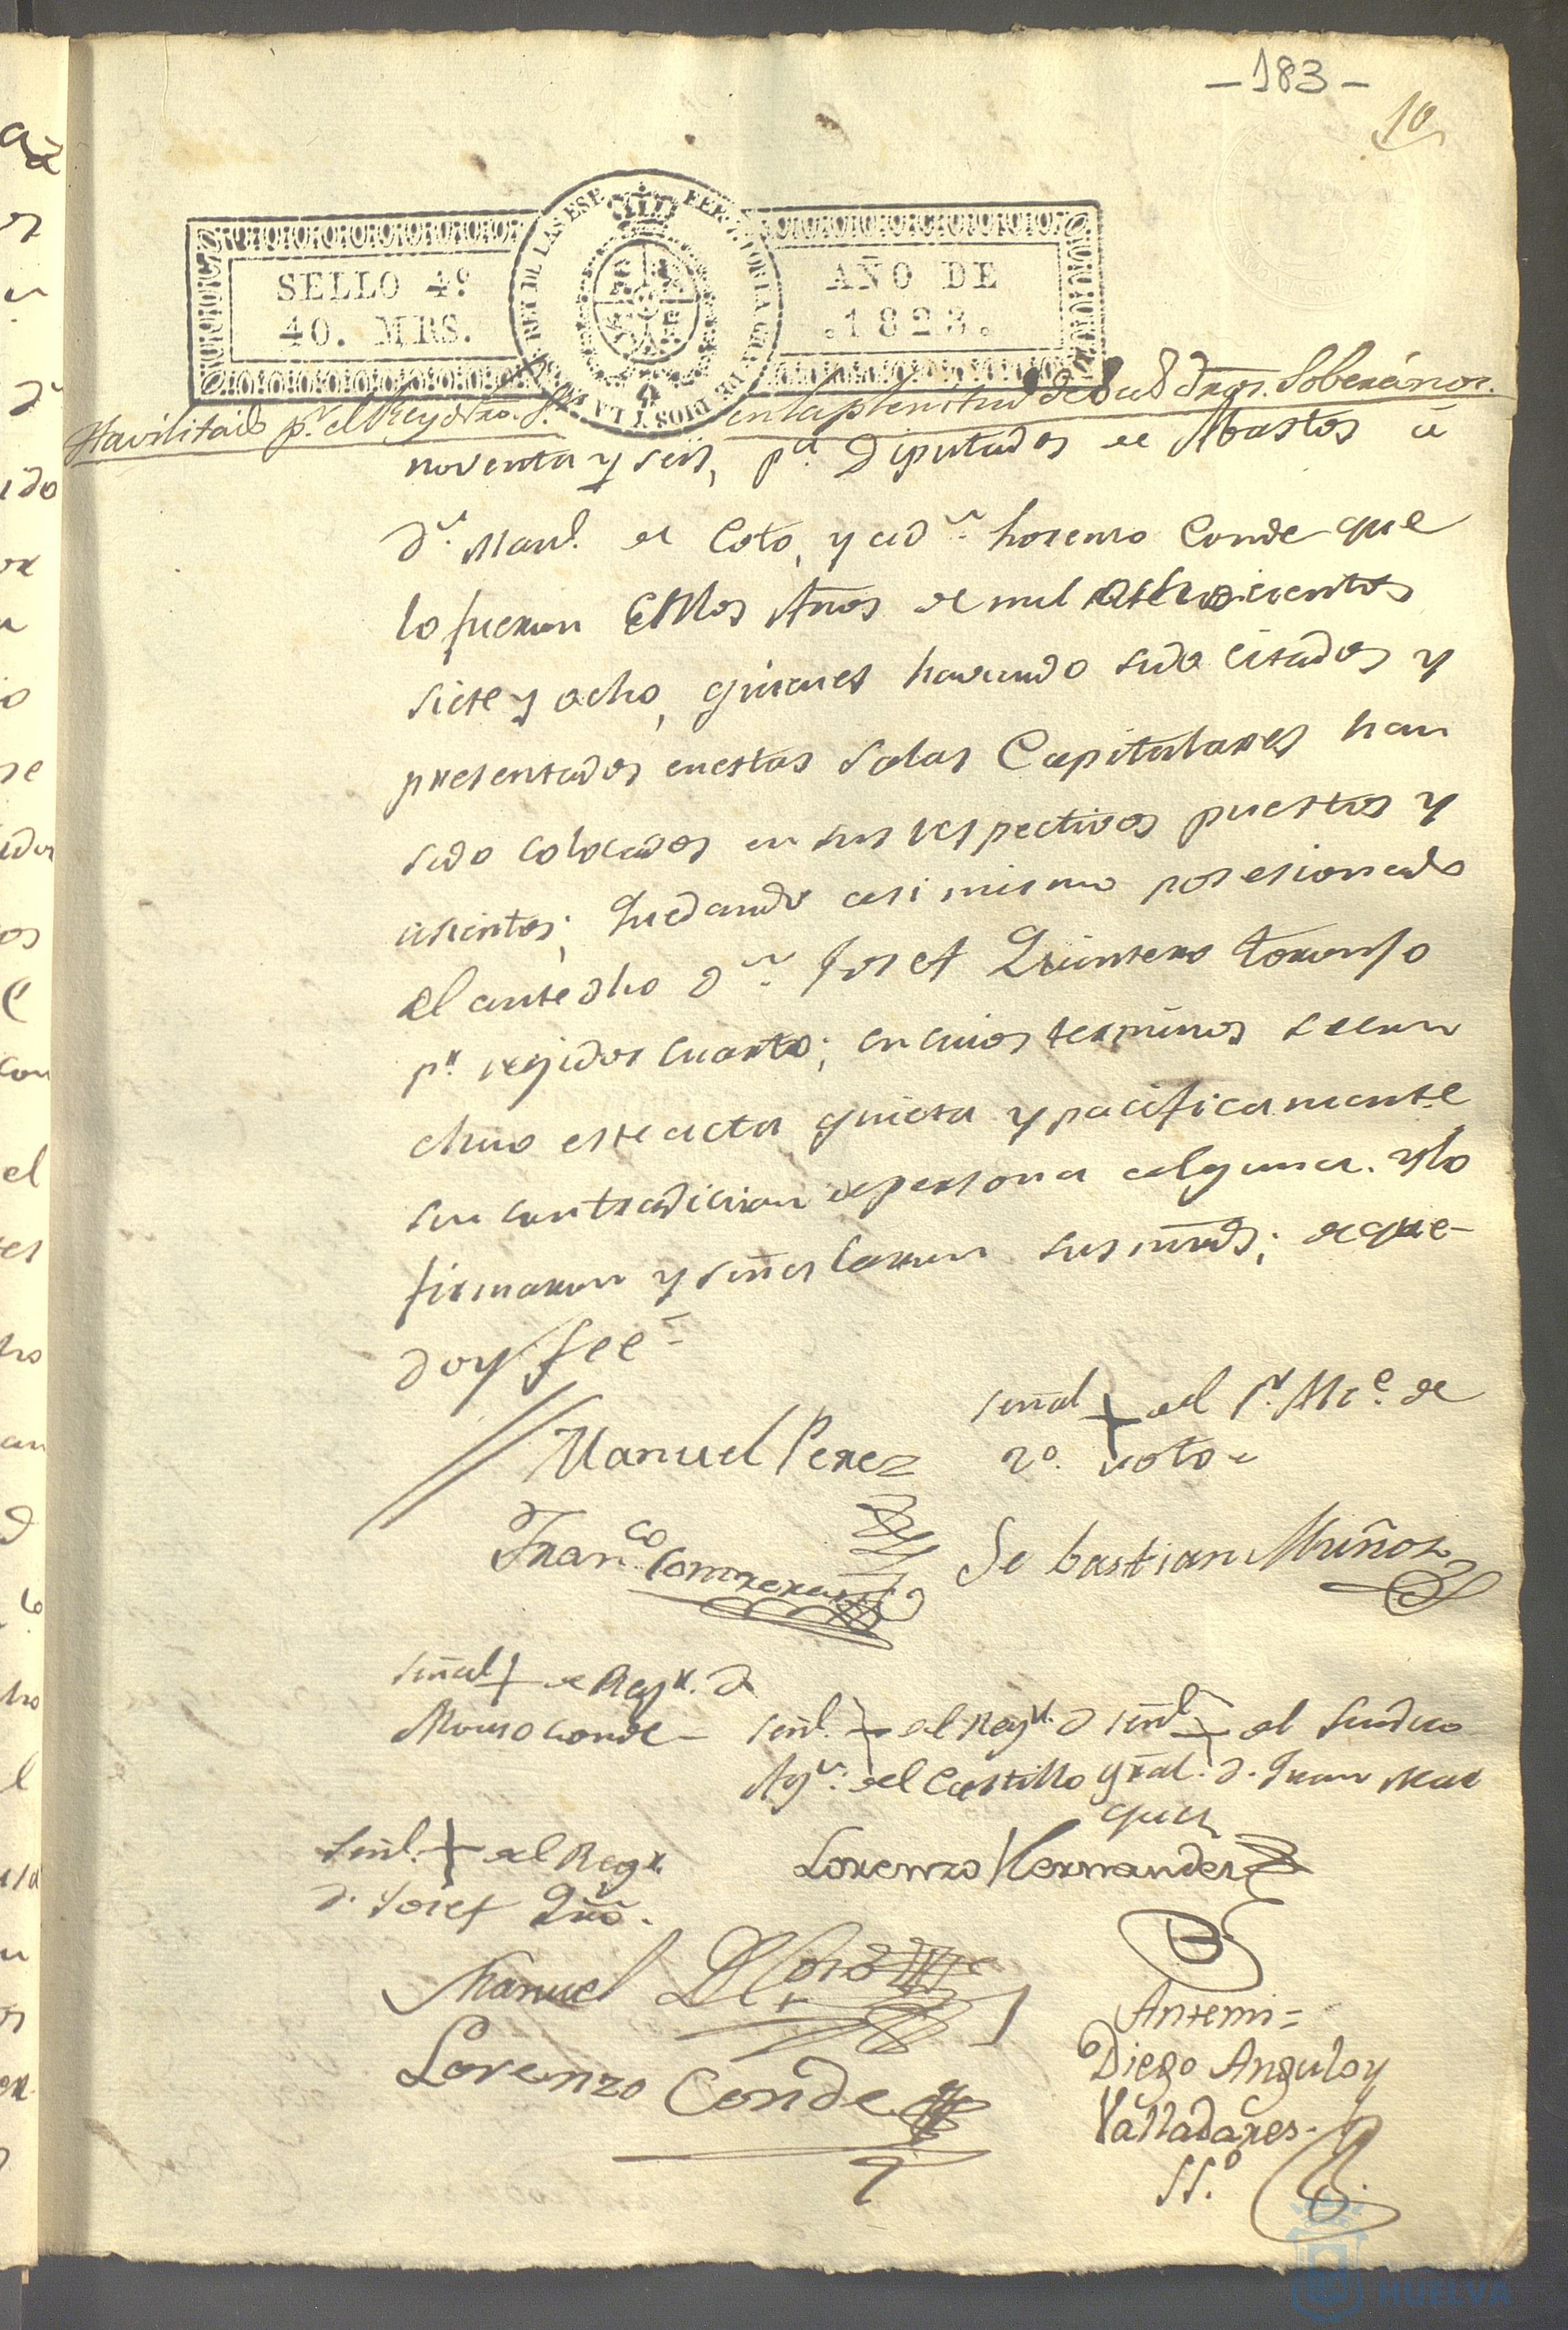 -183-
10
SELLO 4º
40. MRS.
AÑO DE
.1823.
Havilitado pr. el Rey ntro. Sr. en la plenitud de sus drõs. Soberános.
noventa y seis, pa. Diputados de Abastos á
Dn. Manl. de Coto, y a dn. Lorenzo Conde que
lo fueron En los Años de mil ochocientos
siete y ocho, quienes haviendo sido citados y
presentados en estas Salas Capitulares han
sido colocados en sus respectivos puestos y
asientos; quedando asi mismo posesionado
el antedho dn. Josef Quintero
pr. rejidor cuarto; en cuios terminos se con
cluio este acta quieta y pacificamente
sin contradicion de persona alguna. y lo
firmaron y señalaron sus mrds; de que
doy fee=
Manuel Perez
señal + del Sr. Alce. de
2º. voto
Franco Contreras
Sebastian Muñoz
señal + de Regr. d
Alonso Conde
señl. + del Regr. d
Agn. del Castillo
señl + del Sindico
gral. d. Juan Mar
quez
señl. + del Regr.
d. Josef Qrõ.
Lorenzo Hernandez
Manuel Del Coto
Lorenzo Conde
Antemi=
Diego Angulo y
Valladares.
SSº.
HUELVA